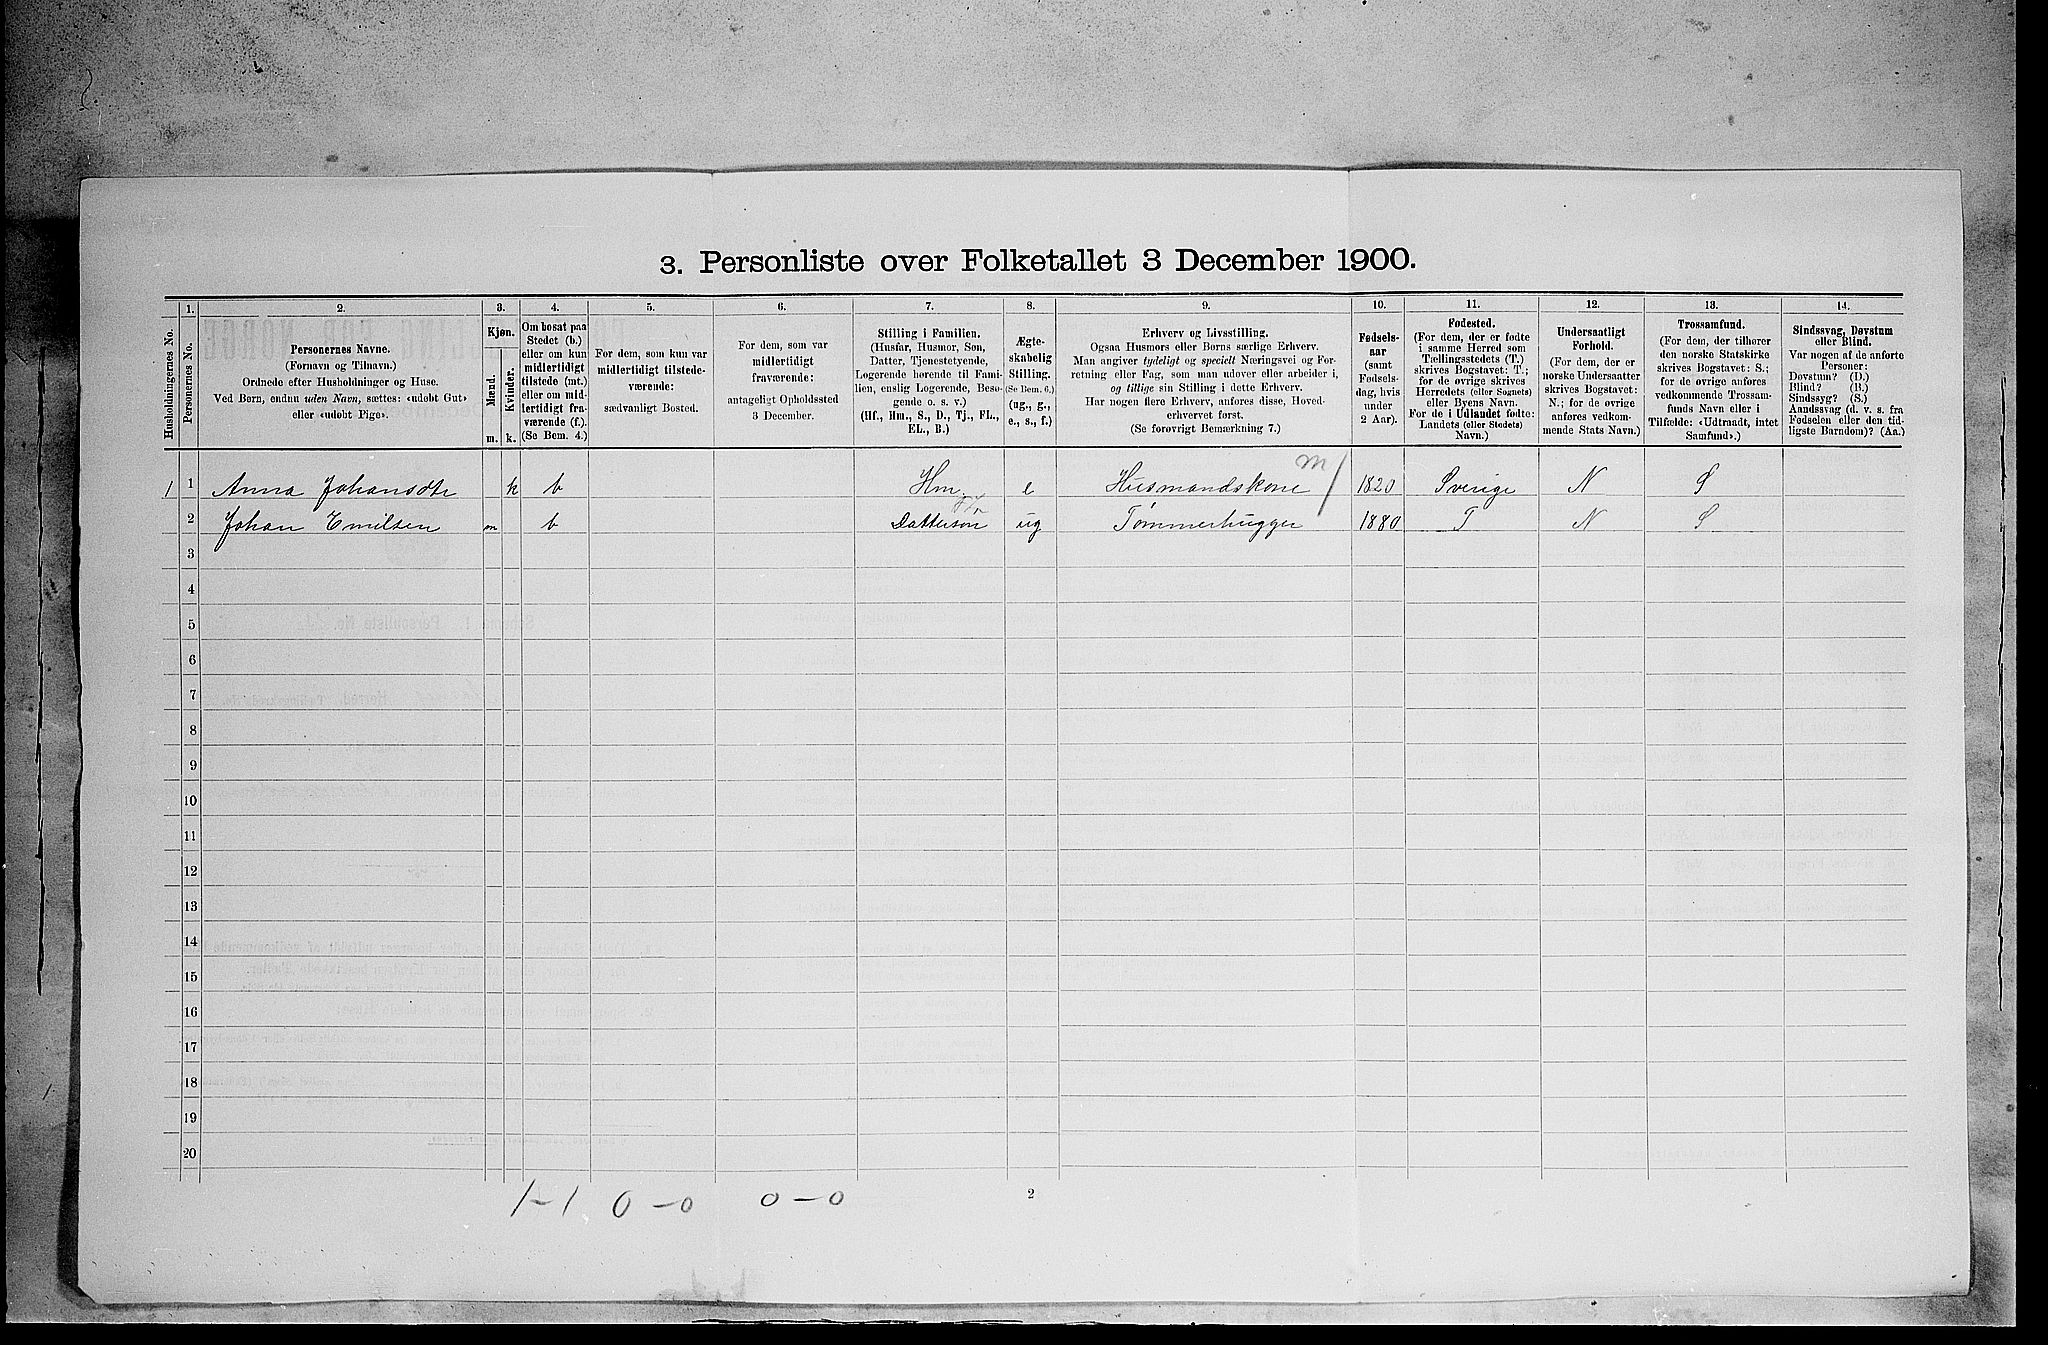 3. Personliste over Folketallet 3 December 1900.
Husholdningernes No.
1.
Personernes No.
2.
Personernes Navne.
(Fornavn og Tilnavn.)
Ordnede efter Husholdninger og Huse.
Ved Børn, endnu uden Navn, sættes: «udøbt Gut»
eller «udøbt Pige».
3.
Kjøn.
Mænd.
Kvinder.
m.
k.
4.
Om bosat paa
Stedet (b.)
eller om kun
midlertidigt
tilstede (mt.)
eller om mid-
lertidigt fra-
værende (f.).
(Se Bem. 4.)
5.
For dem, som kun var
midlertidigt tilstede-
værende:
sædvanligt Bosted.
6.
For dem, som var
midlertidigt
fraværende:
antageligt Opholdssted
3 December.
7.
Stilling i Familien.
(Husfar, Husmor, Søn,
Datter, Tjenestetyende,
Logerende hørende til Fami-
lien, enslig Logerende, Besø-
gende o. s. v.)
(Hf., Hm., S., D., Tj., FL.,
EL., B.)
8.
Ægte-
skabelig
Stilling.
(Se Bem. 6.)
(ug., g.,
e., s., f.)
9.
Erhverv og Livsstilling.
Ogsaa Husmors eller Børns særlige Erhverv.
Man angiver tydeligt og specielt Næringsvei og For-
retning eller Fag, som man udøver eller arbeider i,
og tillige sin Stilling i dette Erhverv.
Har nogen flere Erhverv, anføres disse, Hoved-
erhvervet først.
(Se forøvrigt Bemærkning 7.)
10.
Fødsels-
aar
(samt
Fødsels-
dag, hvis
under
2 Aar).
11.
Fødested.
(For dem, der er fødte
i samme Herred som
Tællingsstedets (T.)
skrives Bogstavet: T.;
for de øvrige skrives
Herredets (eller Sognets)
eller Byens Navn.
For de i Udlandet fødte:
Landets (eller Stedets)
Navn.)
12.
Undersaatligt
Forhold.
(For dem, der er
norske Undersaatter
skrives Bogstavet:
N.; for de øvrige
anføres vedkom-
mende Stats Navn.)
13.
Trossamfund.
(For dem, der tilhører
den norske Statskirke
skrives Bogstavet: S.;
for de øvrige anføres
vedkommende Trossam-
funds Navn eller i
Tilfælde: «Udtraadt, intet
Samfund».)
14.
Sindssvag, Døvstum
eller Blind.
Var nogen af de anførte
Personer:
Døvstum? (D.)
Blind? (B.)
Sindssyg? (S.)
Aandssvag (d. v. s. fra
Fødselen eller den tid-
ligste Barndom)? (Aa.)
1 1 Anna Johansdtr k b Hm. e Husmandskone m 1820 Sverige N S
2 Johan Emilsen m b Datterson ug Tømmerhugger 1880 T N S
3
4
5
6
7
8
9
10
11
12
13
14
15
16
17
18
19
20
1-1 0-0 0-0 2